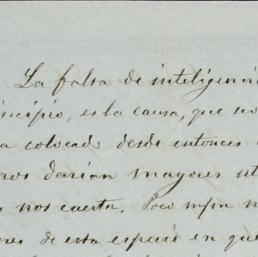 La falta de inteligencia
incipio, es la causa, que no
a colocado desde entonces
ros darian mayores ut
nos cuesta. Poco
nes de esta especie en que